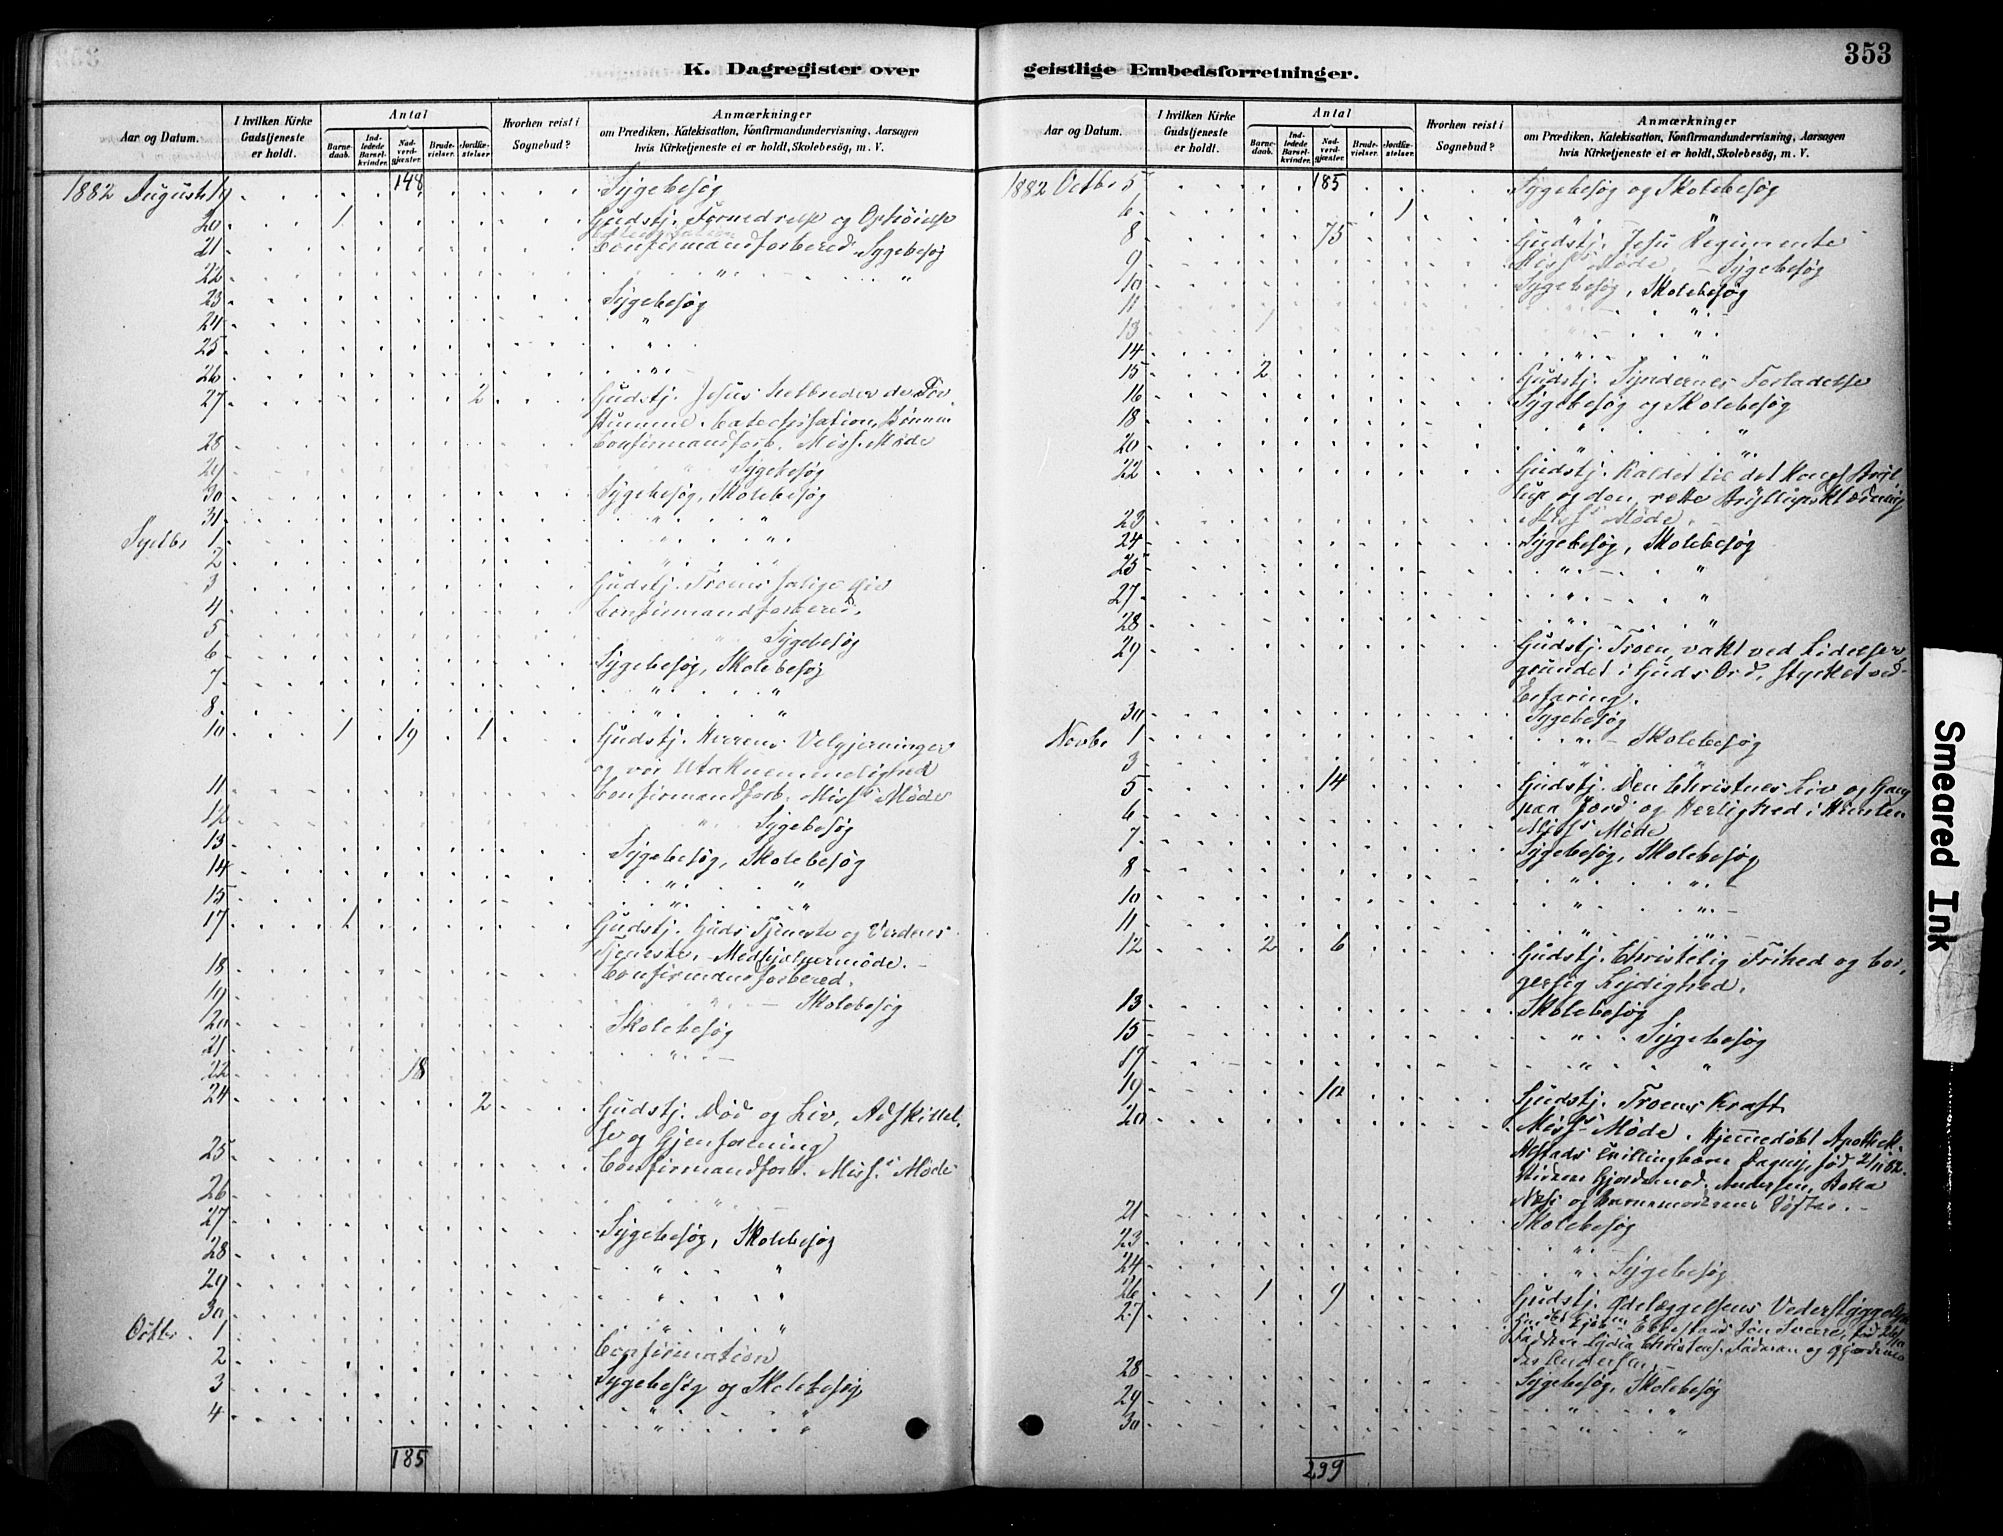 353
K. Dagregister over geistlige Embedsforretninger.
Aar og Datum.
I hvilken Kirke Gudstjeneste er holdt.
Antal
Barnedaab.
Indledede Barselkvinder.
Nadverdgjæster.
Brudevielser.
Jordfæstelser.
Hvorhen reist i Sognebud?
Anmærkninger
om Prædiken, Katekisation, Konfirmandundervisning, Aarsagen
hvis Kirketjeneste ei er holdt, Skolebesøg, m. V.
1882 August 19 148 Sygebesøg
20 1 Gudstj. Fornedrelse og Ophøielse
21 Confirmandforbered. Sygebesøg
22 " "
23 Sygebesøg
24 "
25 "
26 "
27 2 Gudstj. Jesus helbreder de Døv-
stumme. Catechisation,
28 Confirmandforb. Miss. Møde
29 " Sygebesøg
30 Sygebesøg, Skolebesøg
31 " "
Septbr 1 " "
2 " "
3 Gudstj. Troens salige Liv
4 Confirmandforbered.
5 " Sygebesøg
6 Sygebesøg, Skolebesøg
7 " "
8 " "
10 1 19 1 Gudstj. Herrens Velgjerninger
og vor Utaknemmelighed
11 Confirmandforb. Miss. Møde
12 " Sygebesøg
13 Sygebesøg, Skolebesøg
14 " "
15 " "
17 1 Gudstj. Guds Tjeneste og Verdens
Tjeneste. - Medhjælpermøde. -
18 Confirmandforbered.
19 " - Skolebesøg
20 Skolebesøg
21 "
22 18
24 2 Gudstj. Død og Liv, Adskillel-
se og Gjenforening
25 Confirmandforb. Miss. Møde
26 "
27 Sygebesøg, Skolebesøg
28 " "
29 " "
30 " "
Octbr. 1 Confirmation
2 Sygebesøg og Skolebesøg
3
4 " "
185
Aar og Datum.
I hvilken Kirke Gudstjeneste er holdt.
Antal
Barnedaab.
Indledede Barselkvinder.
Nadverdgjæster.
Brudevielser.
Jordfæstelser.
Hvorhen reist i Sognebud?
Anmærkninger
om Prædiken, Katekisation, Konfirmandundervisning, Aarsagen
hvis Kirketjeneste ei er holdt, Skolebesøg, m. V.
1882 Octbr 5 185 Sygebesøg og Skolebesøg
6 1 " "
8 75 Gudstj. Jesu Regimente
9 Miss. Møde. - Sygebesøg
10 Sygebesøg, Skolebesøg
11 " "
13 " "
14 " "
15 2 Gudstj. Syndernes Forladelse
16 Sygebesøg og Skolebesøg
18 " "
20 " "
22 Gudstj. Kaldet til det Kongel. Bryl-
lup og den rette Bryllupsklædning
23 Miss. Møde.
24 Sygebesøg, Skolebesøg
25 " "
27 " "
28 " "
29 Gudstj. Troen, vakt ved Lidelser
grundet i Guds Ord, styrket ved
Erfaring.
30 Sygebesøg
Novbr 1 " - Skolebesøg
3 " "
5 14 Gudstj. Den Christnes Liv og Gang
paa Jord og Herlighed i Himlen
6 Miss. Møde
7 Sygebesøg, Skolebesøg
8 " "
10 " "
11 " "
12 2 6 Gudstj. Christelig Frihed og bor-
gerlig Lydighed.
13 Skolebesøg
15 " Sygebesøg
17 " "
19 10 Gudstj. Troens Kraft
20 Miss. Møde. Hjemmedøbt Apothek.
Tvillingbørn Dagny, fød 2/11 82.
Gjordemod. Andersen,
og Barnemoderens Søster. -
21 Skolebesøg
23 "
24 " Sygebesøg
26 1 9 Gudstj. Ødelæggelsens Vederstyggelighed
27 Søn Sverre, fød 26/10
Lydia Christens. Faderen og Gjordemo-
der Andersen. -
28 Sygebesøg, Skolebesøg
29 " "
30 " "
299
Smeared Ink